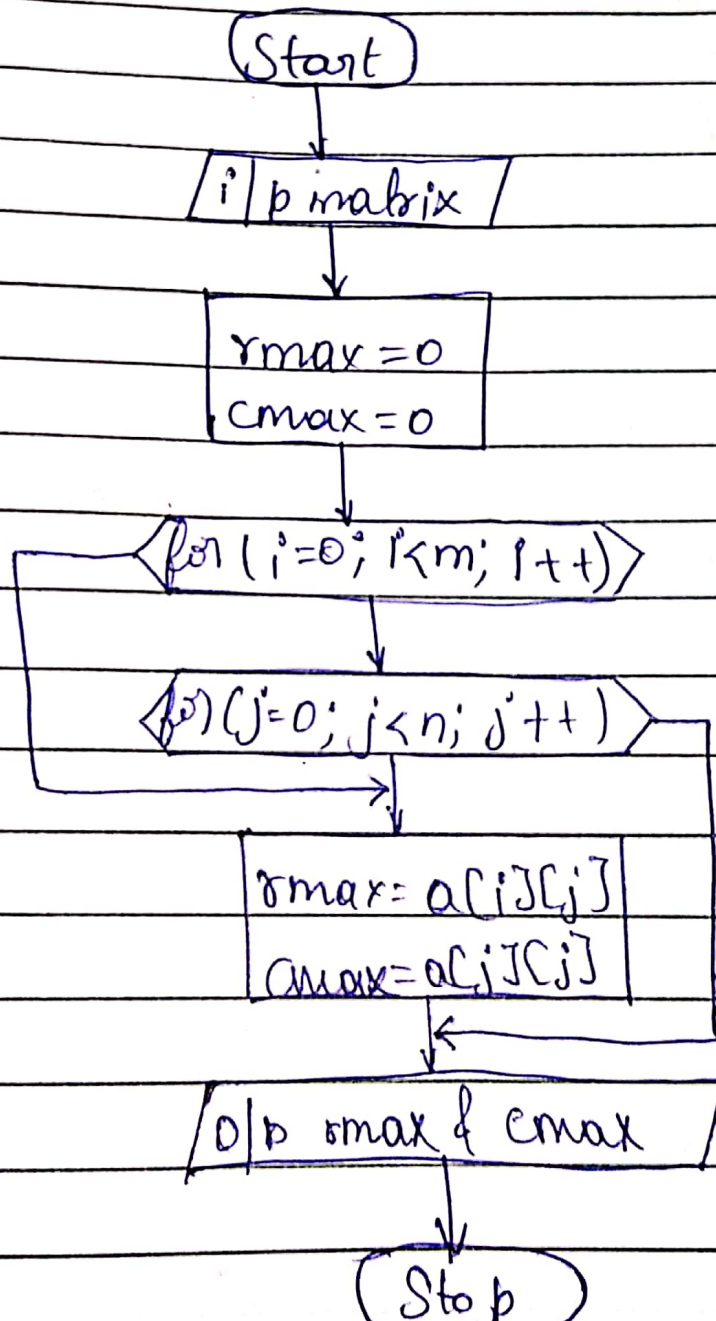 Start
i/p matrix
rmax = 0
cmax = 0
for (i=0; i<m; i++)
for (j=0; j<n; j++)
rmax= a[i][j]
cmax= a[j][j]
O/p rmax & cmax
Stop